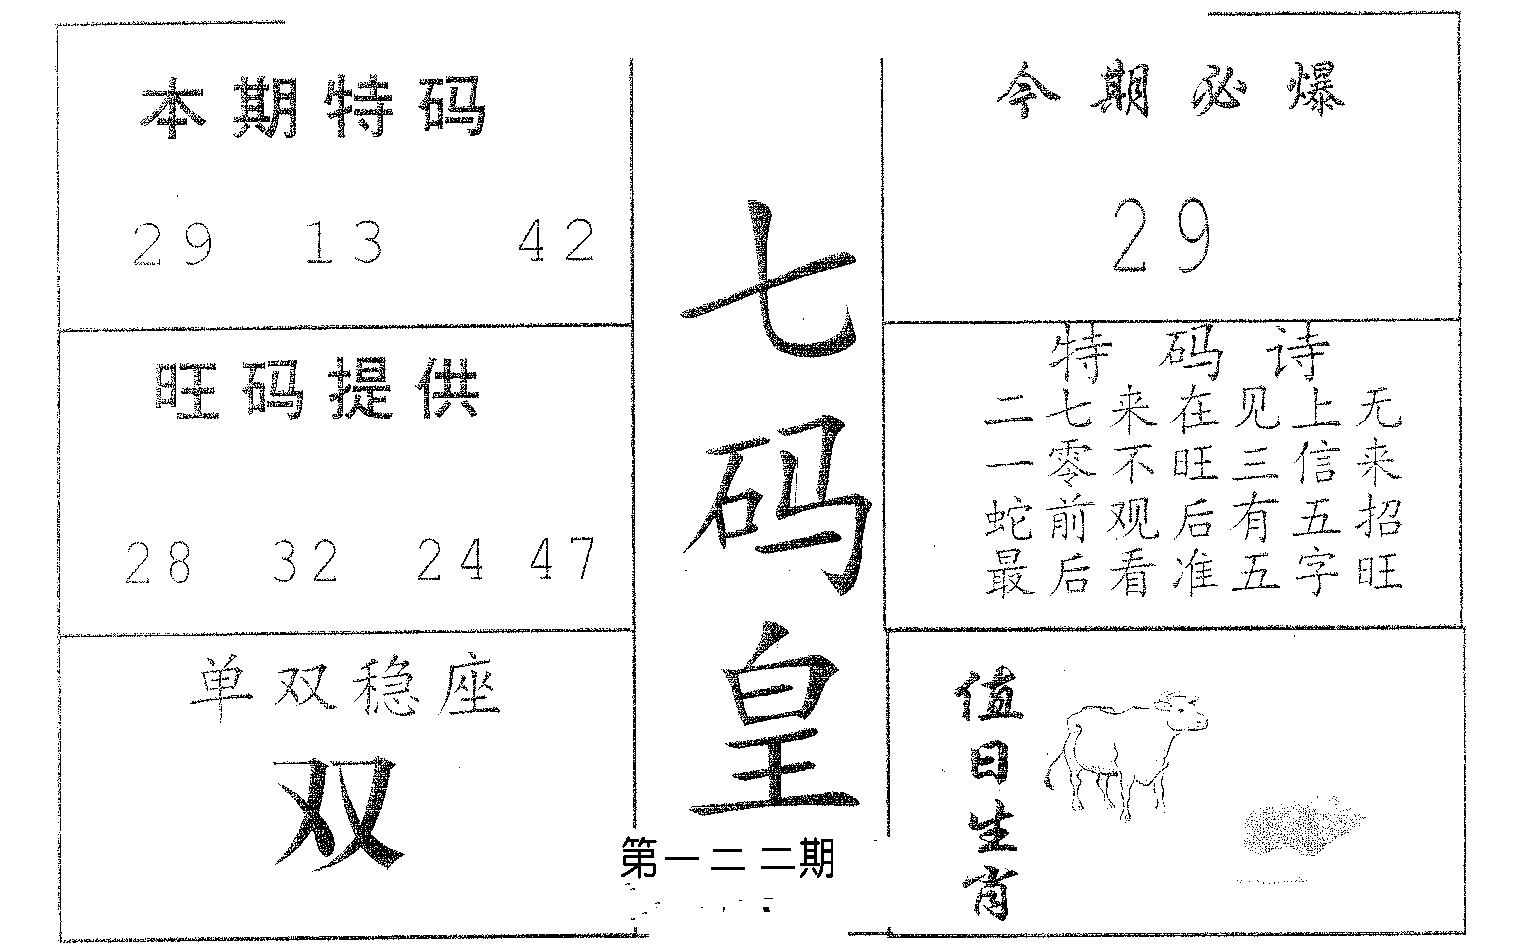 本期特码
29 13 42
旺码提供
28 32 24 47
单双稳座
双
七码皇
第一二二期
今期必爆
29
特码诗
二七来在见上无
一零不旺三信来
蛇前观后有五招
最后看准五字旺
值日生肖